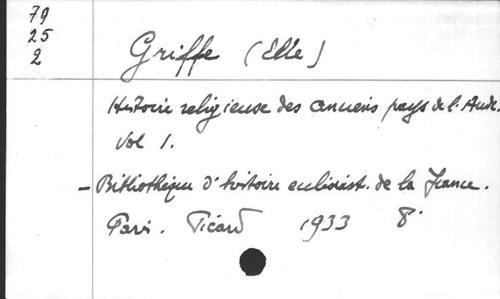 79
25
2
Griffe (Elie)
Histoire religieuse des anciens pays de l'Aude.
Vol 1.
- Bibliothèque d'histoire ecclésiast. de la France.
Paris. Picard 1933 8°